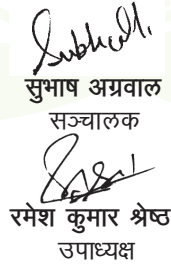 सुभाष अग्रवाल
सञ्चालक
रमेश कुमार श्रेष्ठ
उपाध्यक्ष